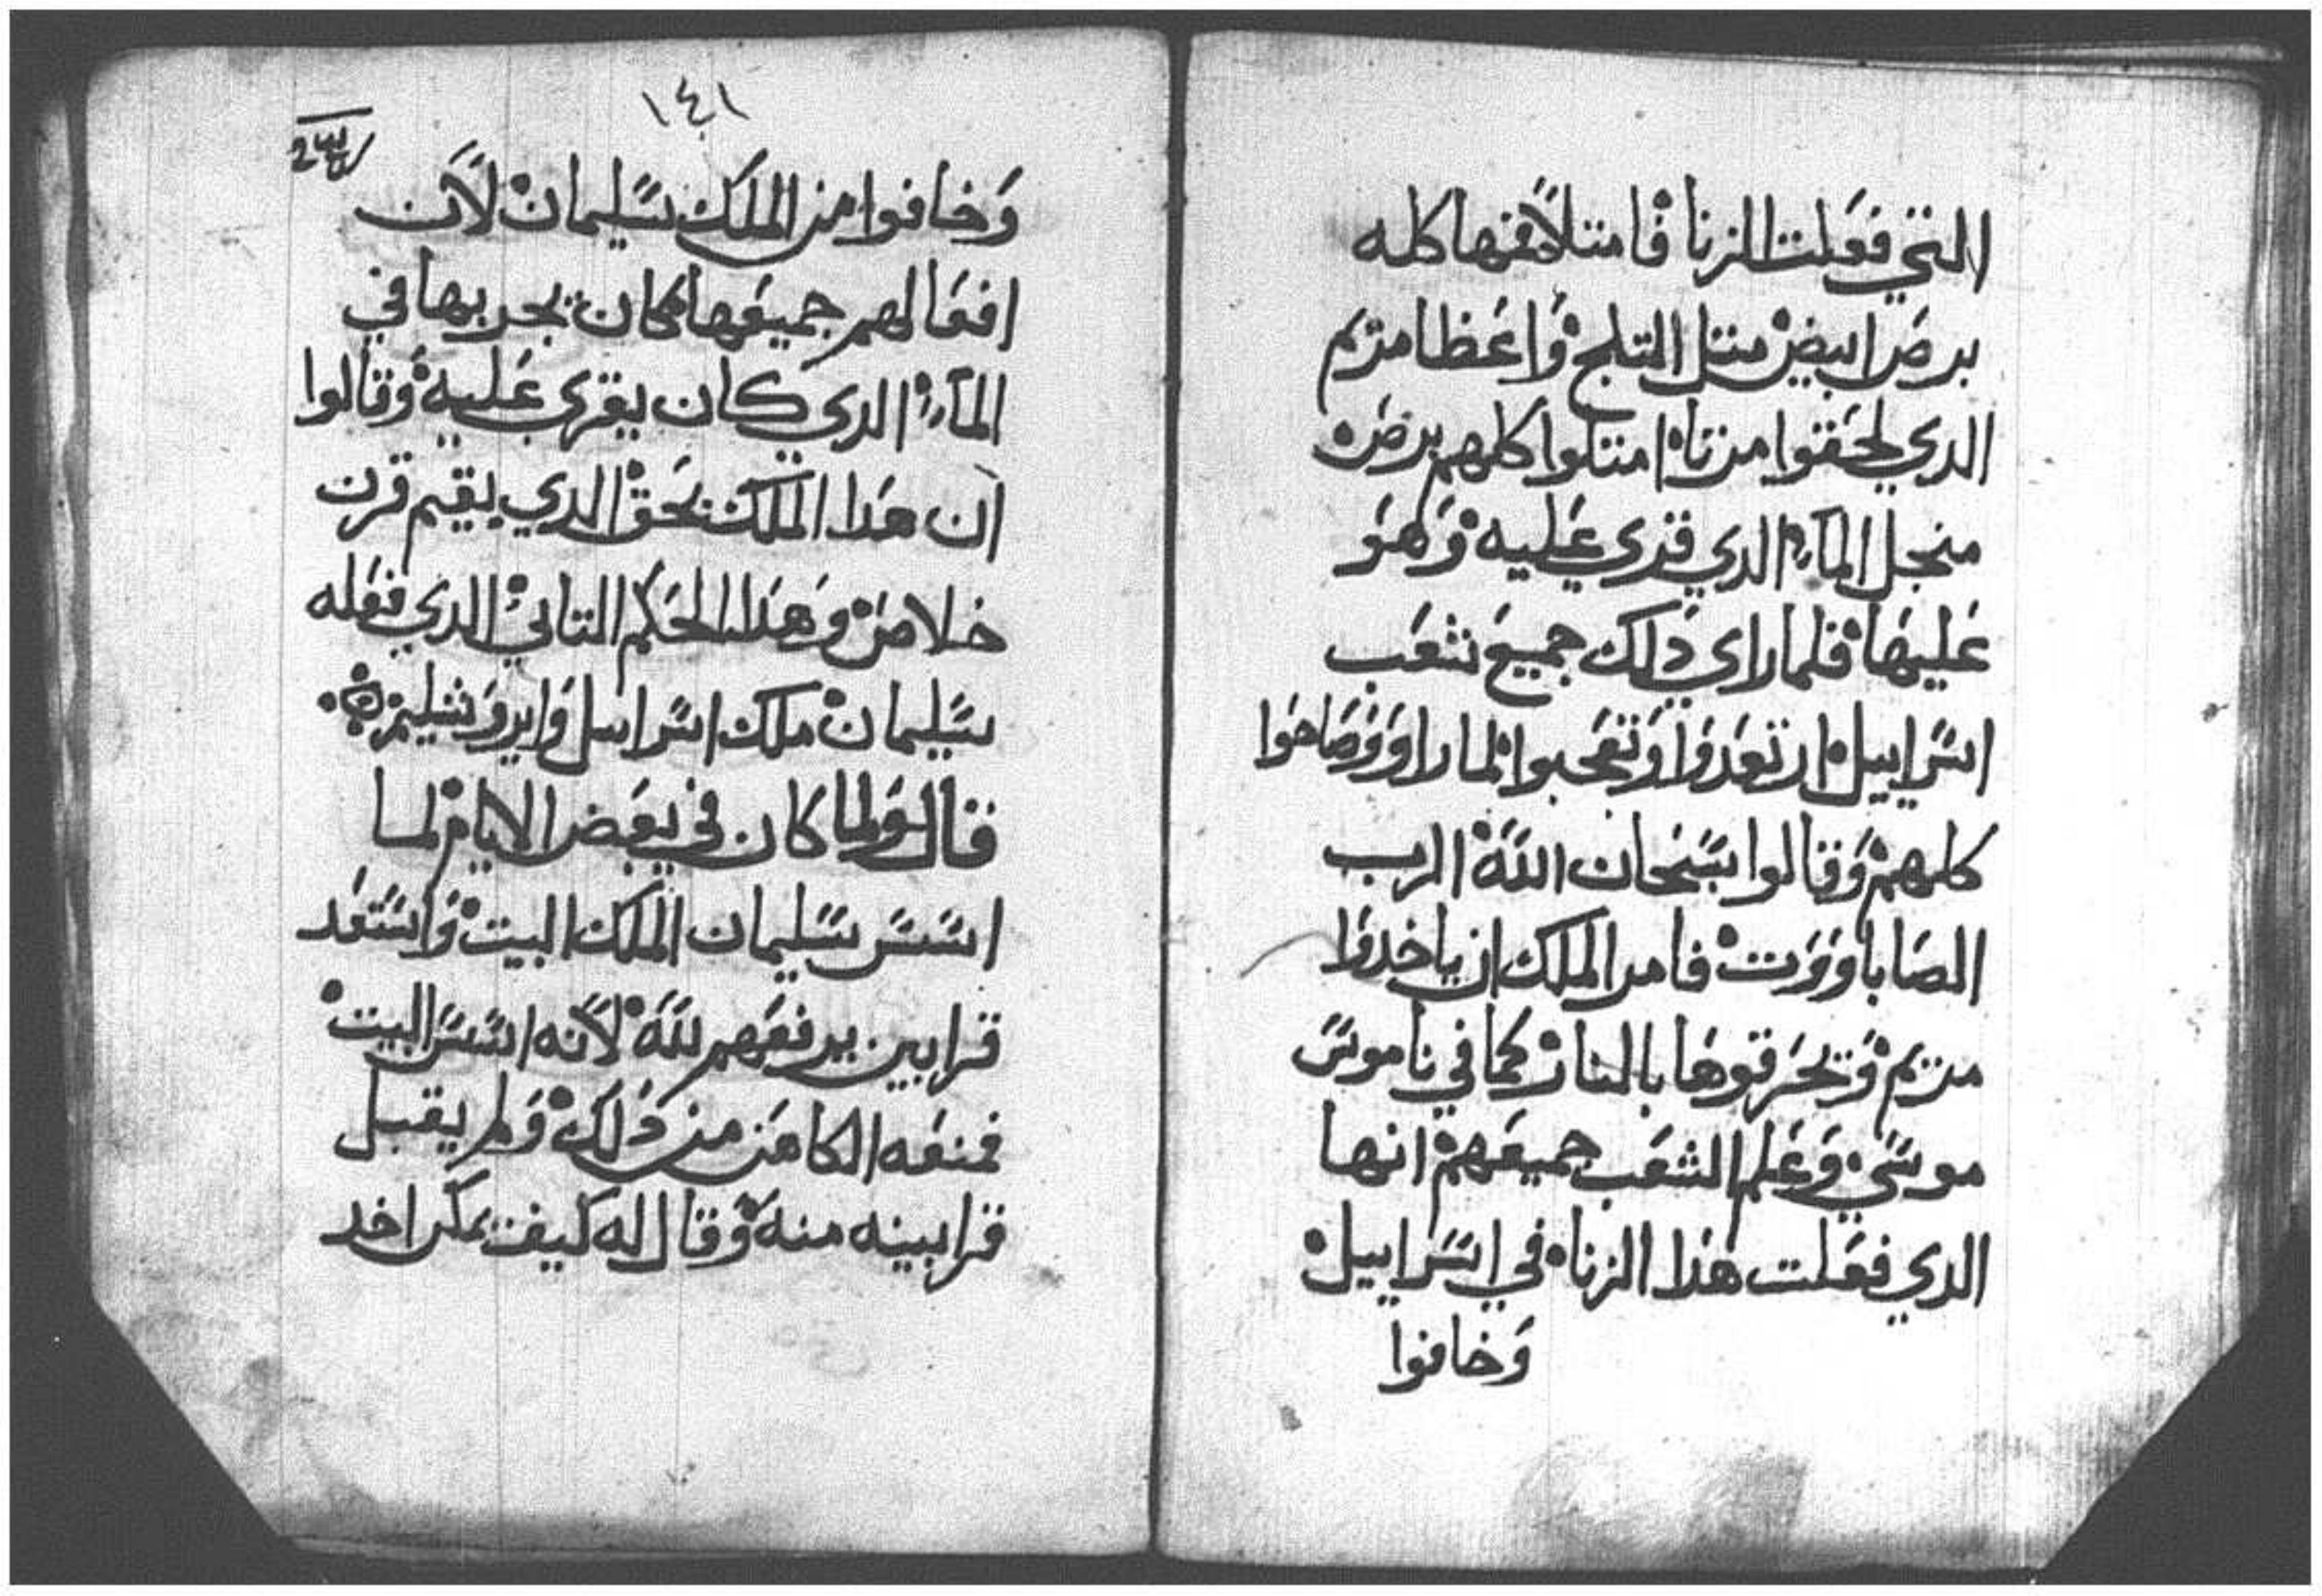 التي فعلت الزنا فامتلا فمها كله
برص ابيض متل التلج واعظا مريم
الدي لحقوا مزناه امتلوا كلهم برص
منجل الماء الدي قري عليه وهو
عليها فلما راي دلك جميع شعب
اسراييل ارتعدوا وتعجبوا لما راوو وصاحوا
كلهم وقالوا بسبحان الله الرب
الصاباووت فامر الملك ان ياخدوا
مريم وتحرقوها بالنار كما في ناموس
موسي وعلم الشعب جميعهم انها
الدي فعلت هدا الزناه في اسراييل
وخافوا
١٤١
وخافوا من الملك سليمان لان
افعالهم جميعها كان يجربها في
الماء الدي كان يقري عليه وقالوا
ان هدا الملك بحق الدي يقيم قرن
خلاص وهدا الحكم التاني الدي فعله
سليمان ملك اسراييل وايروشليم
قال ولما كان في بعض الايام لما
اسس سليمان الملك البيت واستعد
قرابين يرفعهم لله لانه اسس البيت
فمنعه الكاهن من دلك ولم يقبل
قرابينه منه وقال له كيف يمكن اخد